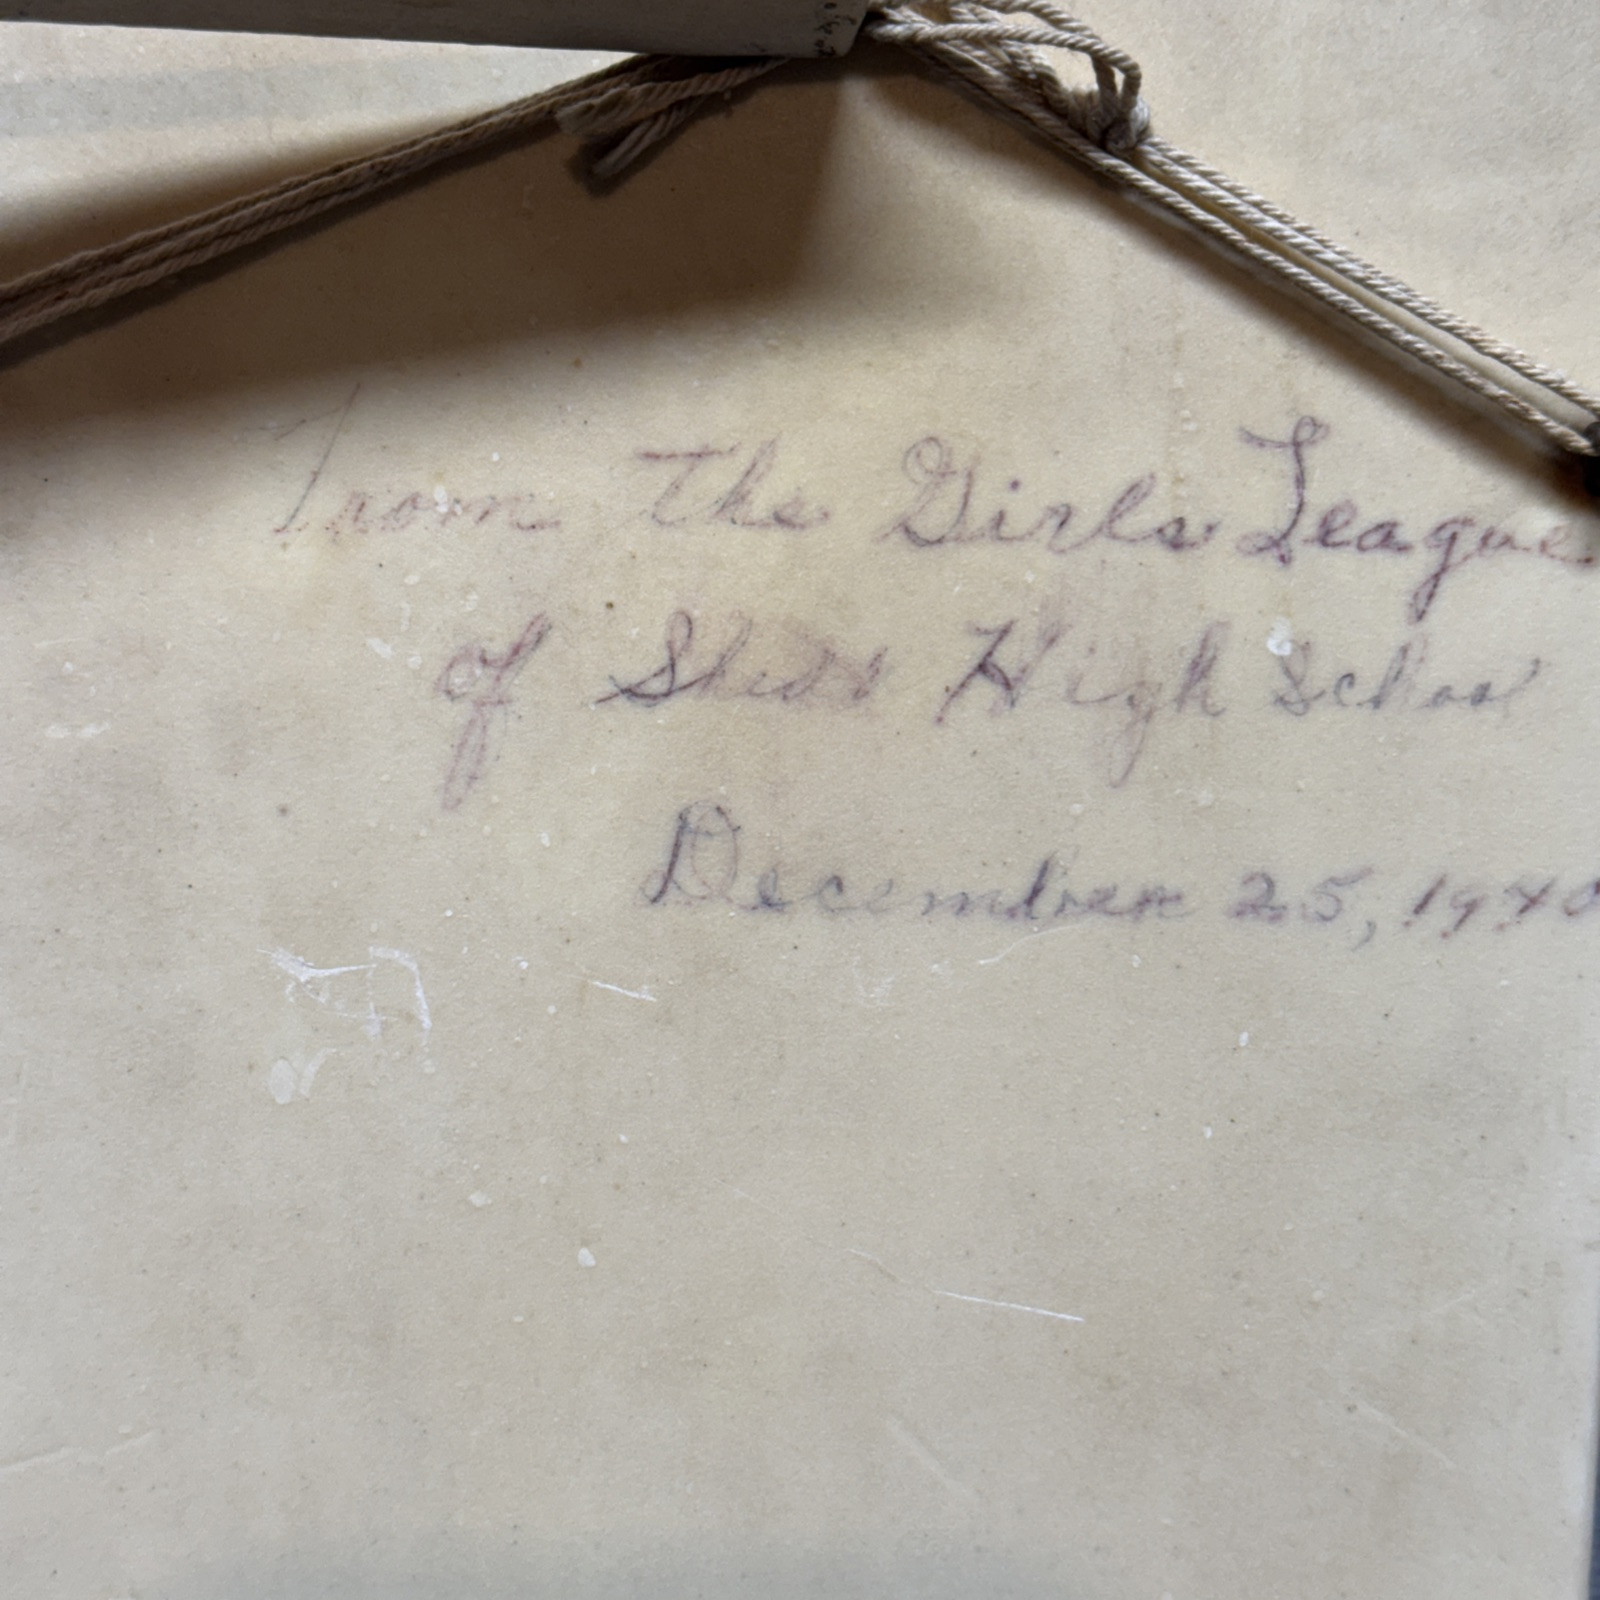 From the Girls League
of Shedd High School
December 25, 1940